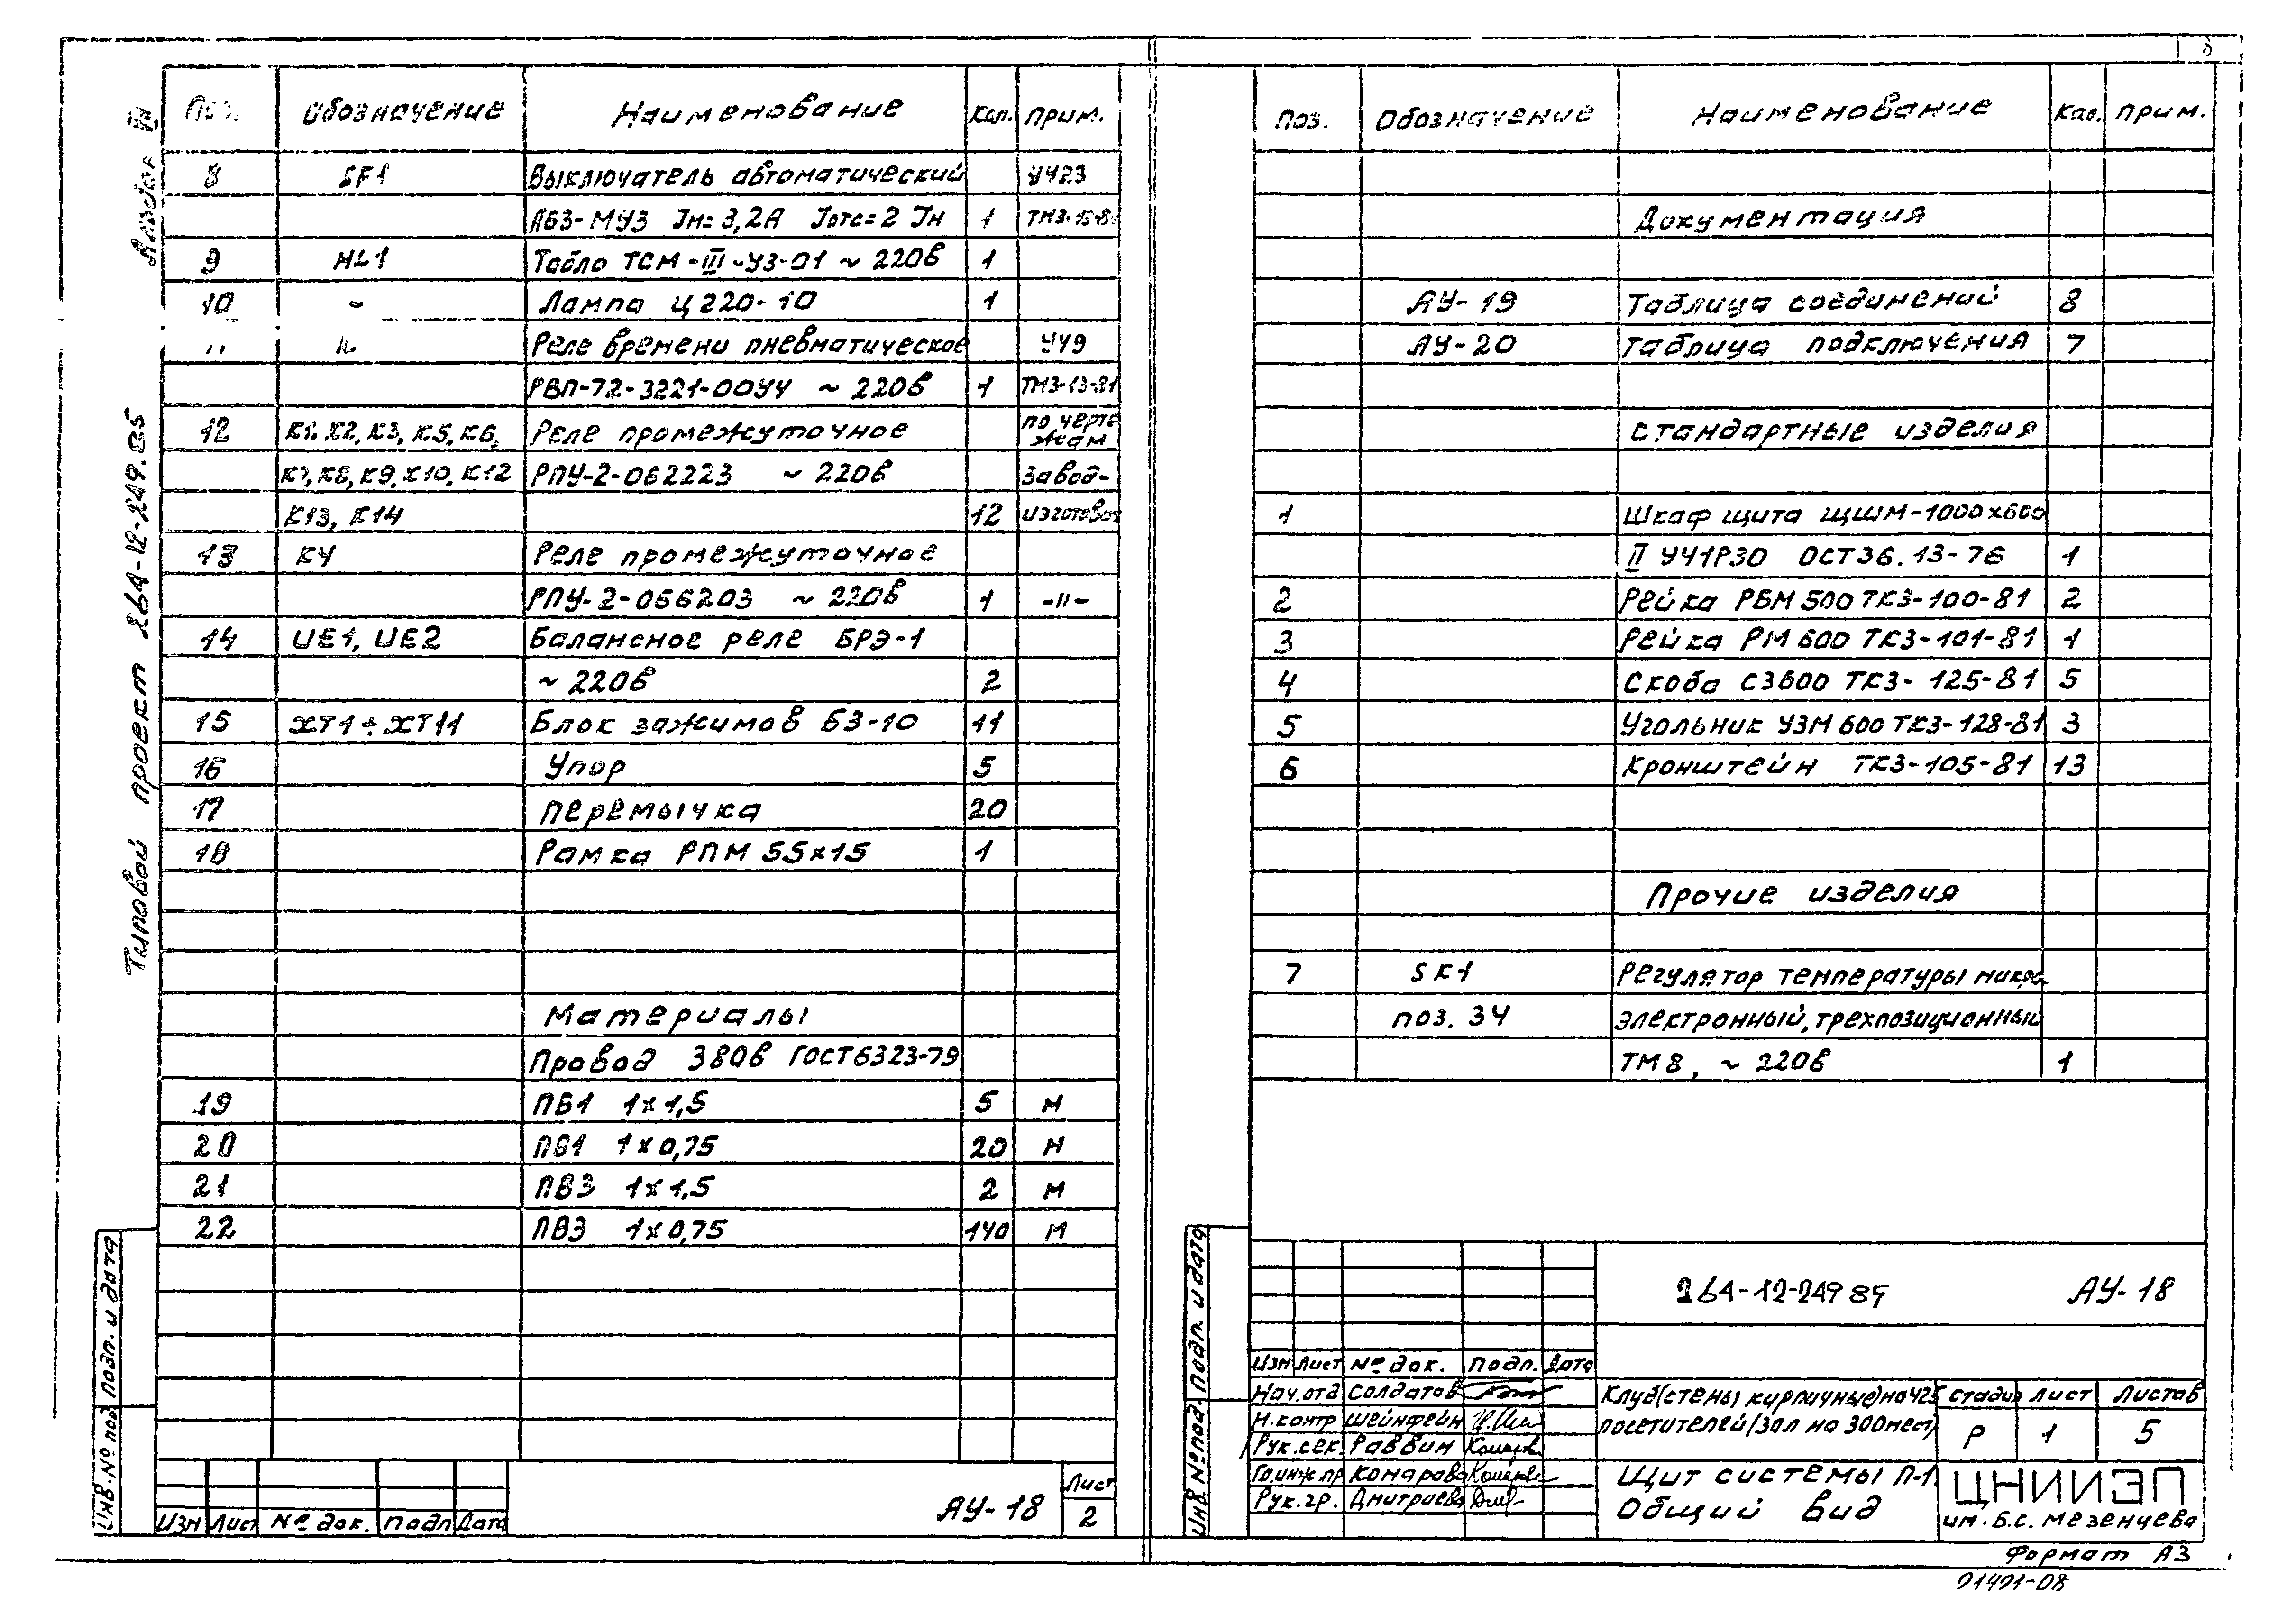 Типовой проект 264-12-249.85
Поз. Обозначение Наименование Кол. Прим.
8 SF1 Выключатель автоматический УЧ23
АБ3-МУ3 Iн=3,2А Iотс=2 Iн 1 ТМ3-15-8
9 HL1 Табло ТСМ-III-У3-01 ~ 220в 1
10 - Лампа Ц 220-10 1
11 Реле времени пневматическое УЧ9
РВП-72-3221-00УЧ ~ 220в 1 ТМ3-13-81
12 К1, К2, К3, К5, К6, Реле промежуточное по черте
жам
К7, К8, К9, К10, К12 РПУ-2-062223 ~ 220в завод-
К13, К14 12 изготов
13 К4 Реле промежуточное
РПУ-2-066203 ~ 220в 1 -"-
14 UE1, UE2 Балансное реле БРЭ-1
~ 220в 2
15 XT1÷XT11 Блок зажимов БЗ-10 11
16 Упор 5
17 Перемычка 20
18 Рамка РПМ 55х15 1
Материалы
Провод 380в ГОСТ6323-79
19 ПВ1 1х1,5 5 м
20 ПВ1 1х0,75 20 м
21 ПВ3 1х1,5 2 м
22 ПВ3 1х0,75 140 м
Инв.№ под Подп. и дата
Изм Лист № док. Подп Дата
АУ-18
Лист
2
Поз. Обозначение Наименование Кол. Прим.
Документация
АУ-19 Таблица соединений 8
АУ-20 Таблица подключения 7
Стандартные изделия
1 Шкаф щита ЩШМ-1000х600
II УЧ1Р30 ОСТ36.13-76 1
2 Рейка РБМ 500 ТК3-100-81 2
3 Рейка РМ 600 ТК3-101-81 1
4 Скоба С3600 ТК3-125-81 5
5 Угольник УЗМ 600 ТК3-128-81 3
6 Кронштейн ТК3-105-81 13
Прочие изделия
7 SK1 Регулятор температуры микро
поз. 34 электронный, трехпозиционный
ТМ8, ~ 220в 1
Инв.№ под. Подп. и дата
264-12-249 85 АУ-18
Изм Лист № док. Подп. Дата
Нач.отд Солдатов
Н.контр Шейнфейн
Рук.сек. Раввин
Гл.инж.пр Комарова
Рук.гр. Дмитриева
Клуб(стены кирпичные)на 425
посетителей/зал на 300мест)
Стадия Лист Листов
Р 1 5
Щит системы П-1.
Общий вид
ЦНИИЭП
им. Б.С. Мезенцева
Формат А3
21491-08